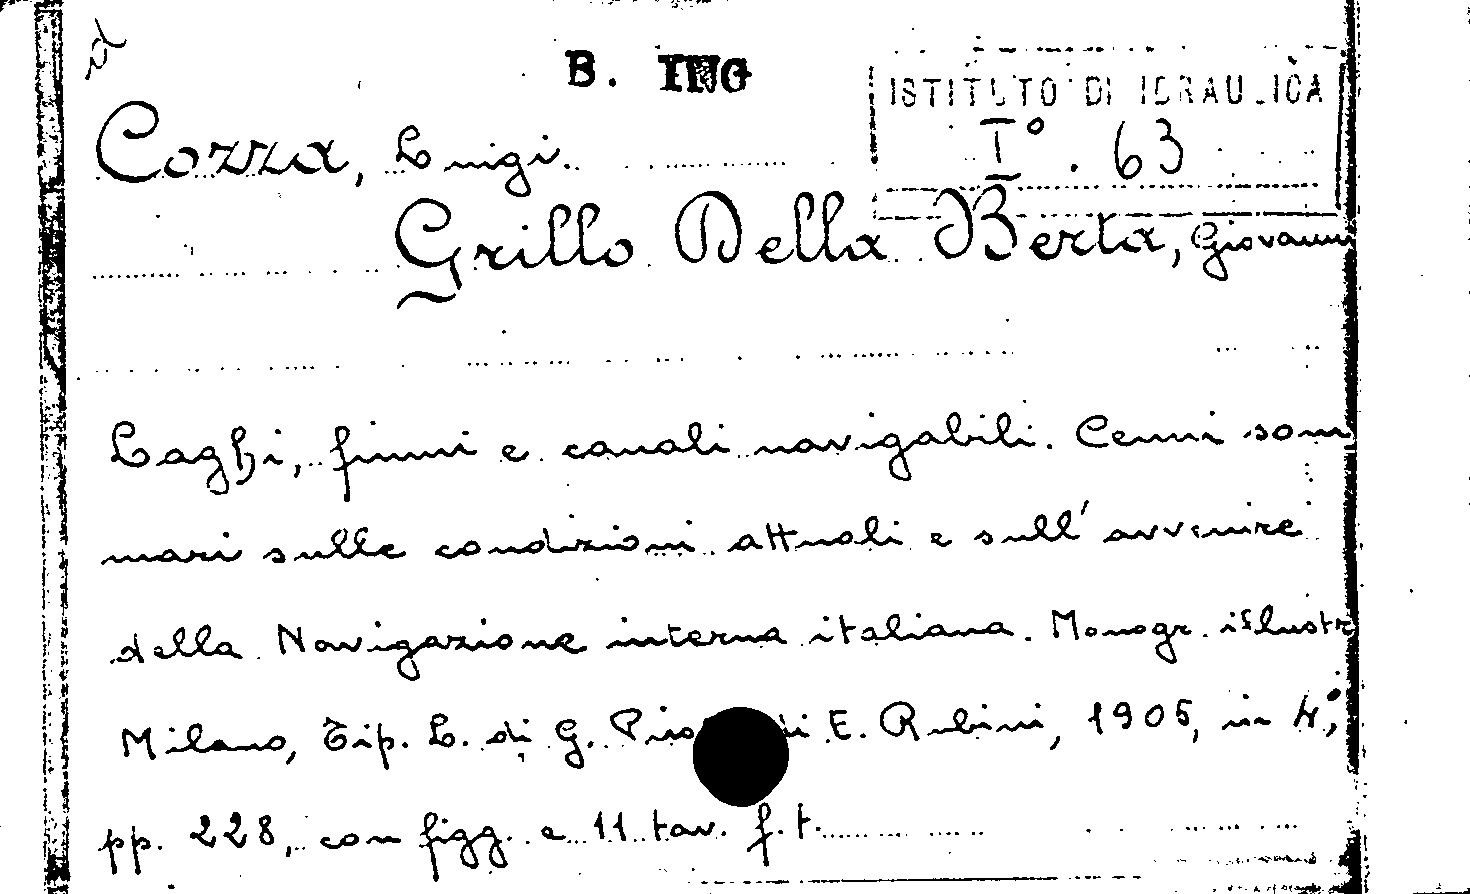 id
B. ING
ISTITUTO DI IDRAULICA
I° . 63
Cozza, Luigi.
Grillo Della Berta, Giovanni
Laghi, fiumi e canali navigabili. Cenni som
mari sulle condizioni attuali e sull' avvenire
della Navigazione interna italiana. Monogr. illustr
Milano, Tip. L. di G. di E. Rubini, 1905, in 4°,
pp. 228, con figg. e 11 tav. f.t.